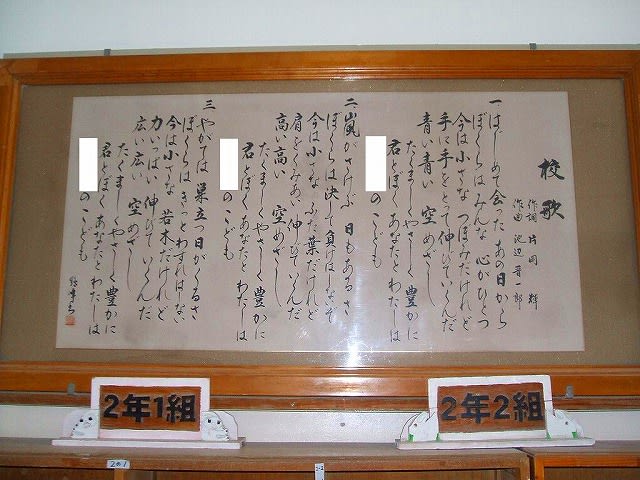 校歌
作詞 片岡 輝
作曲 池辺晋一郎
一 はじめて会った あの日から
ぼくらはみんな 心がひとつ
今は小さな つぼみだけれど
手に手をとって 伸びていくんだ
青い青い 空めざし
たくましく やさしく 豊かに
君とぼく あなたとわたしは
のこども
二 嵐がさけぶ 日もあるさ
ぼくらは決して 負けはしないぞ
今は小さな ふた葉だけれど
肩をくみあい 伸びていくんだ
高い高い 空めざし
たくましく やさしく 豊かに
君とぼく あなたとわたしは
のこども
三 やがては 巣立つ日がくるさ
ぼくらは きっとわすれはしない
今は小さな 若木だけれど
力いっぱい 伸びていくんだ
広い広い 空めざし
たくましく やさしく 豊かに
君とぼく あなたとわたしは
のこども
2年1組
2年2組
2の1